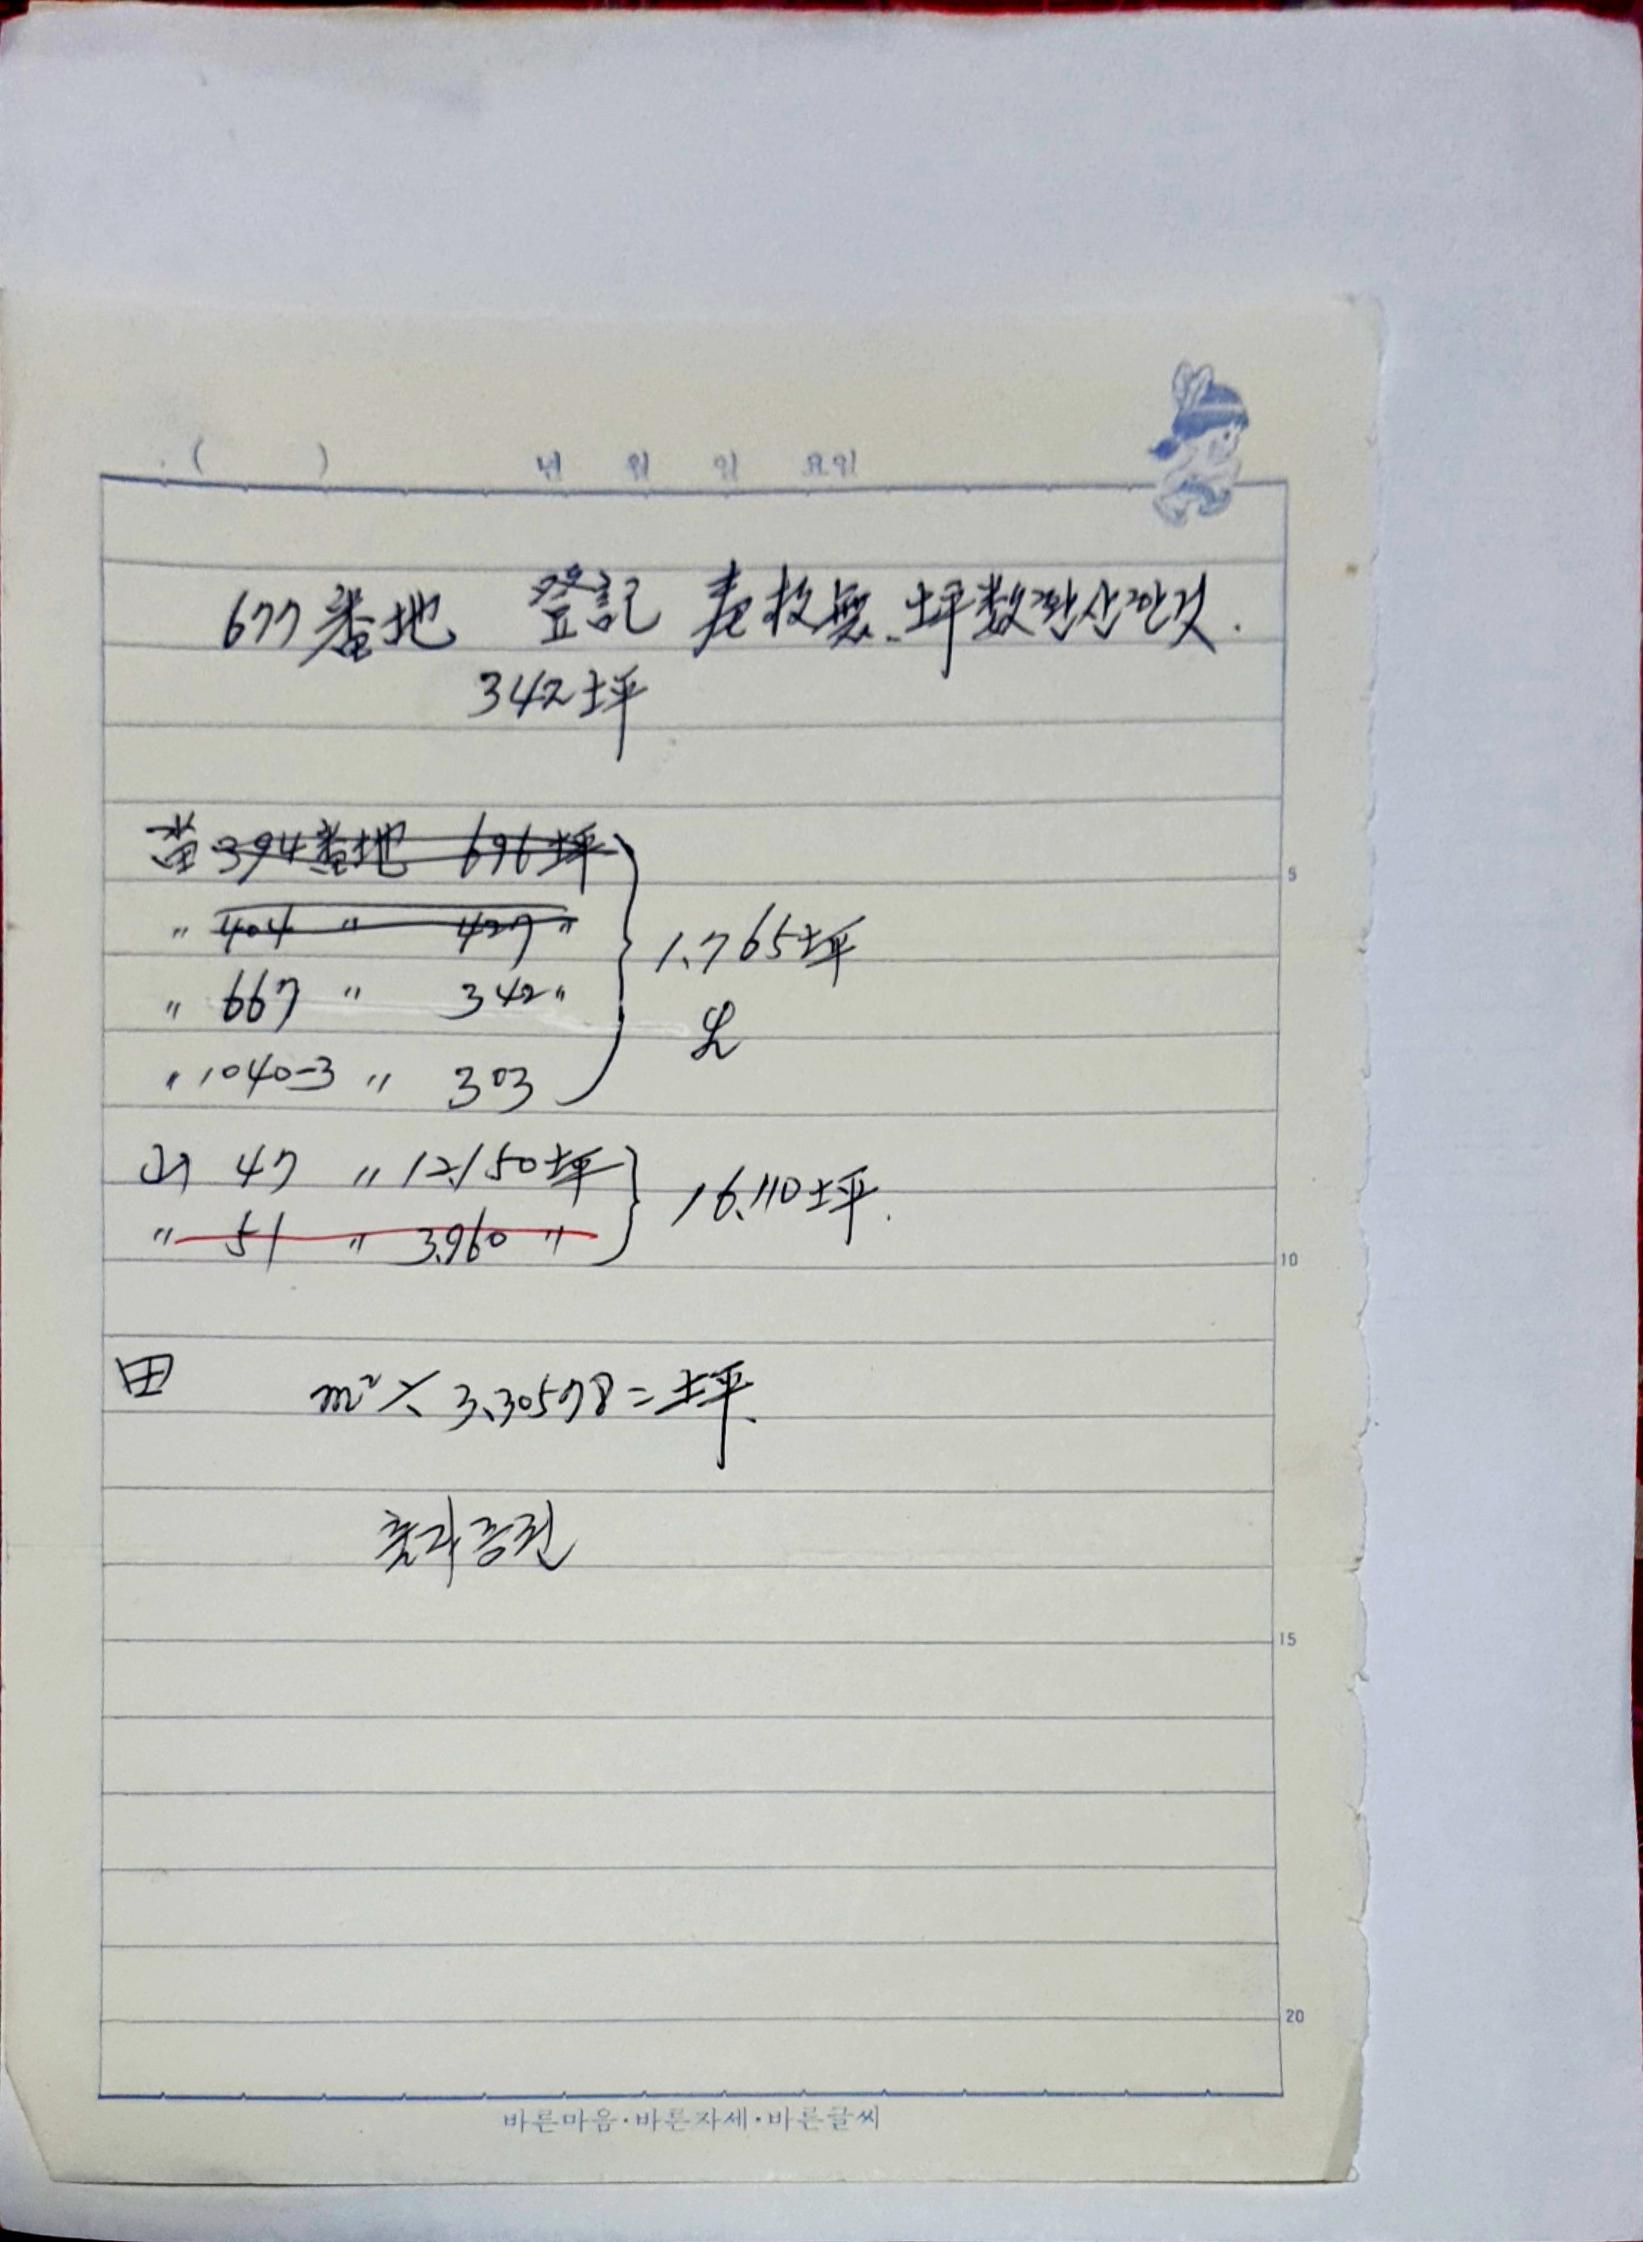 ( ) 년 월 일 요일
677番地 登記 表 枚無. 坪数환산한것.
342坪
苗 394番地 696坪
〃 404 〃 427 〃
〃 667 〃 342 〃
〃 1040-3 〃 303
1.765坪
5
山 47 〃 12,150坪
〃 51 〃 3.960 〃
16.110坪.
10
田 m² ÷ 3.30578 = 坪.
증권
15
20
바른마음·바른자세·바른글씨